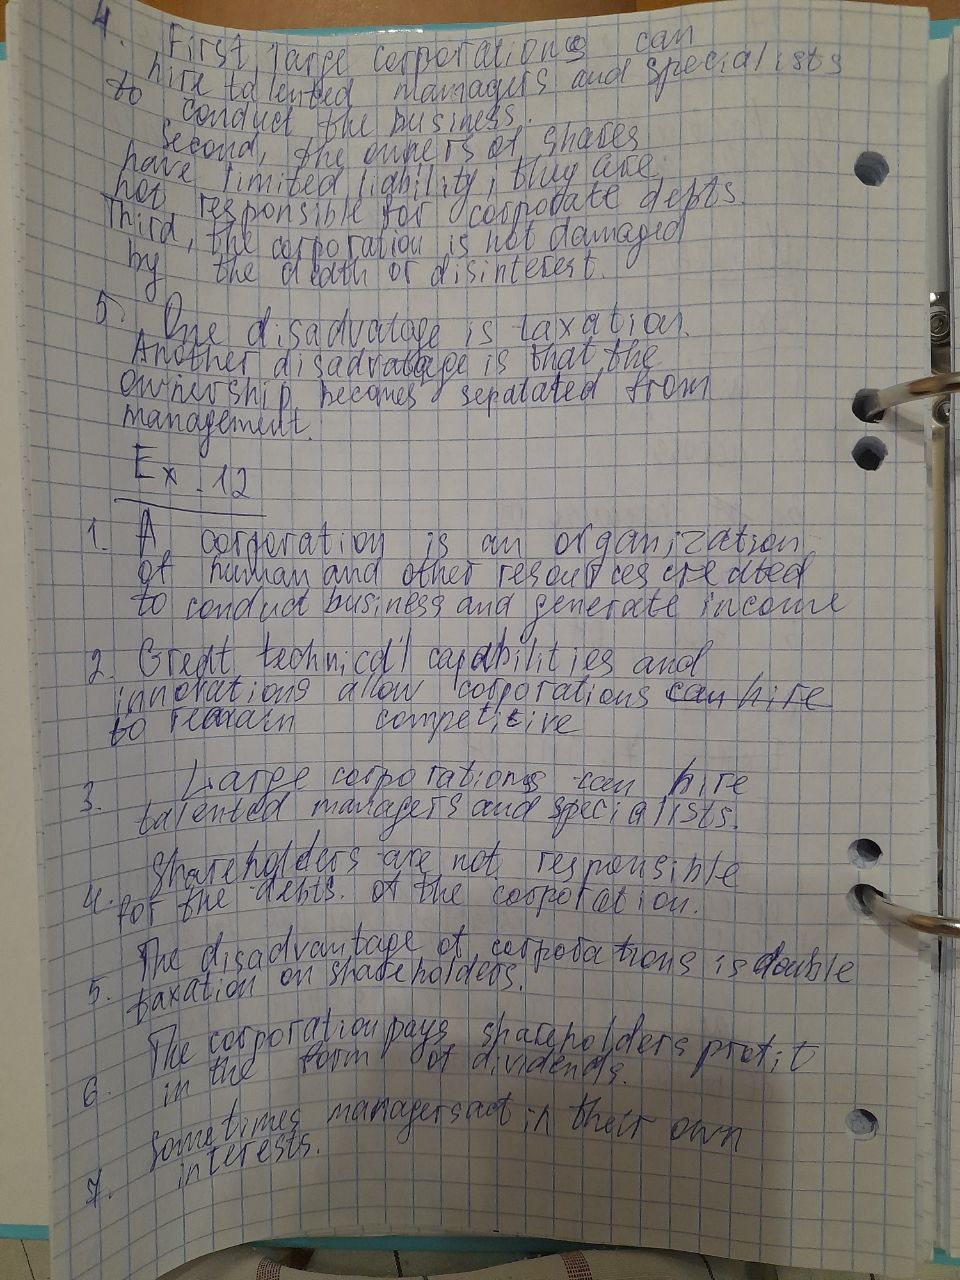 4. First, large corporations can
hire talented managers and specialists
to conduct the business.
Second, the owners of shares
have limited liability, they are
not responsible for corporate depts.
Third, the corporation is not damaged
by the death or disinterest.
5. One disadvatage is taxation.
Another disadvatage is that the
ownership becomes separated from
management.
Ex. 12
1. A corporation is an organization
of human and other resources created
to conduct business and generate income
2. Great technical capabilities and
innovations allow corporations can hire
to remain competitive
3. Large corporations can hire
talented managers and specialists.
Shareholders are not responsible
4. for the debts. of the corporation.
The disadvantage of corporations is double
5. taxation on shareholders.
The corporation pays shareholders profit
6. in the form of dividends.
Sometimes managers act in their own
7. interests.